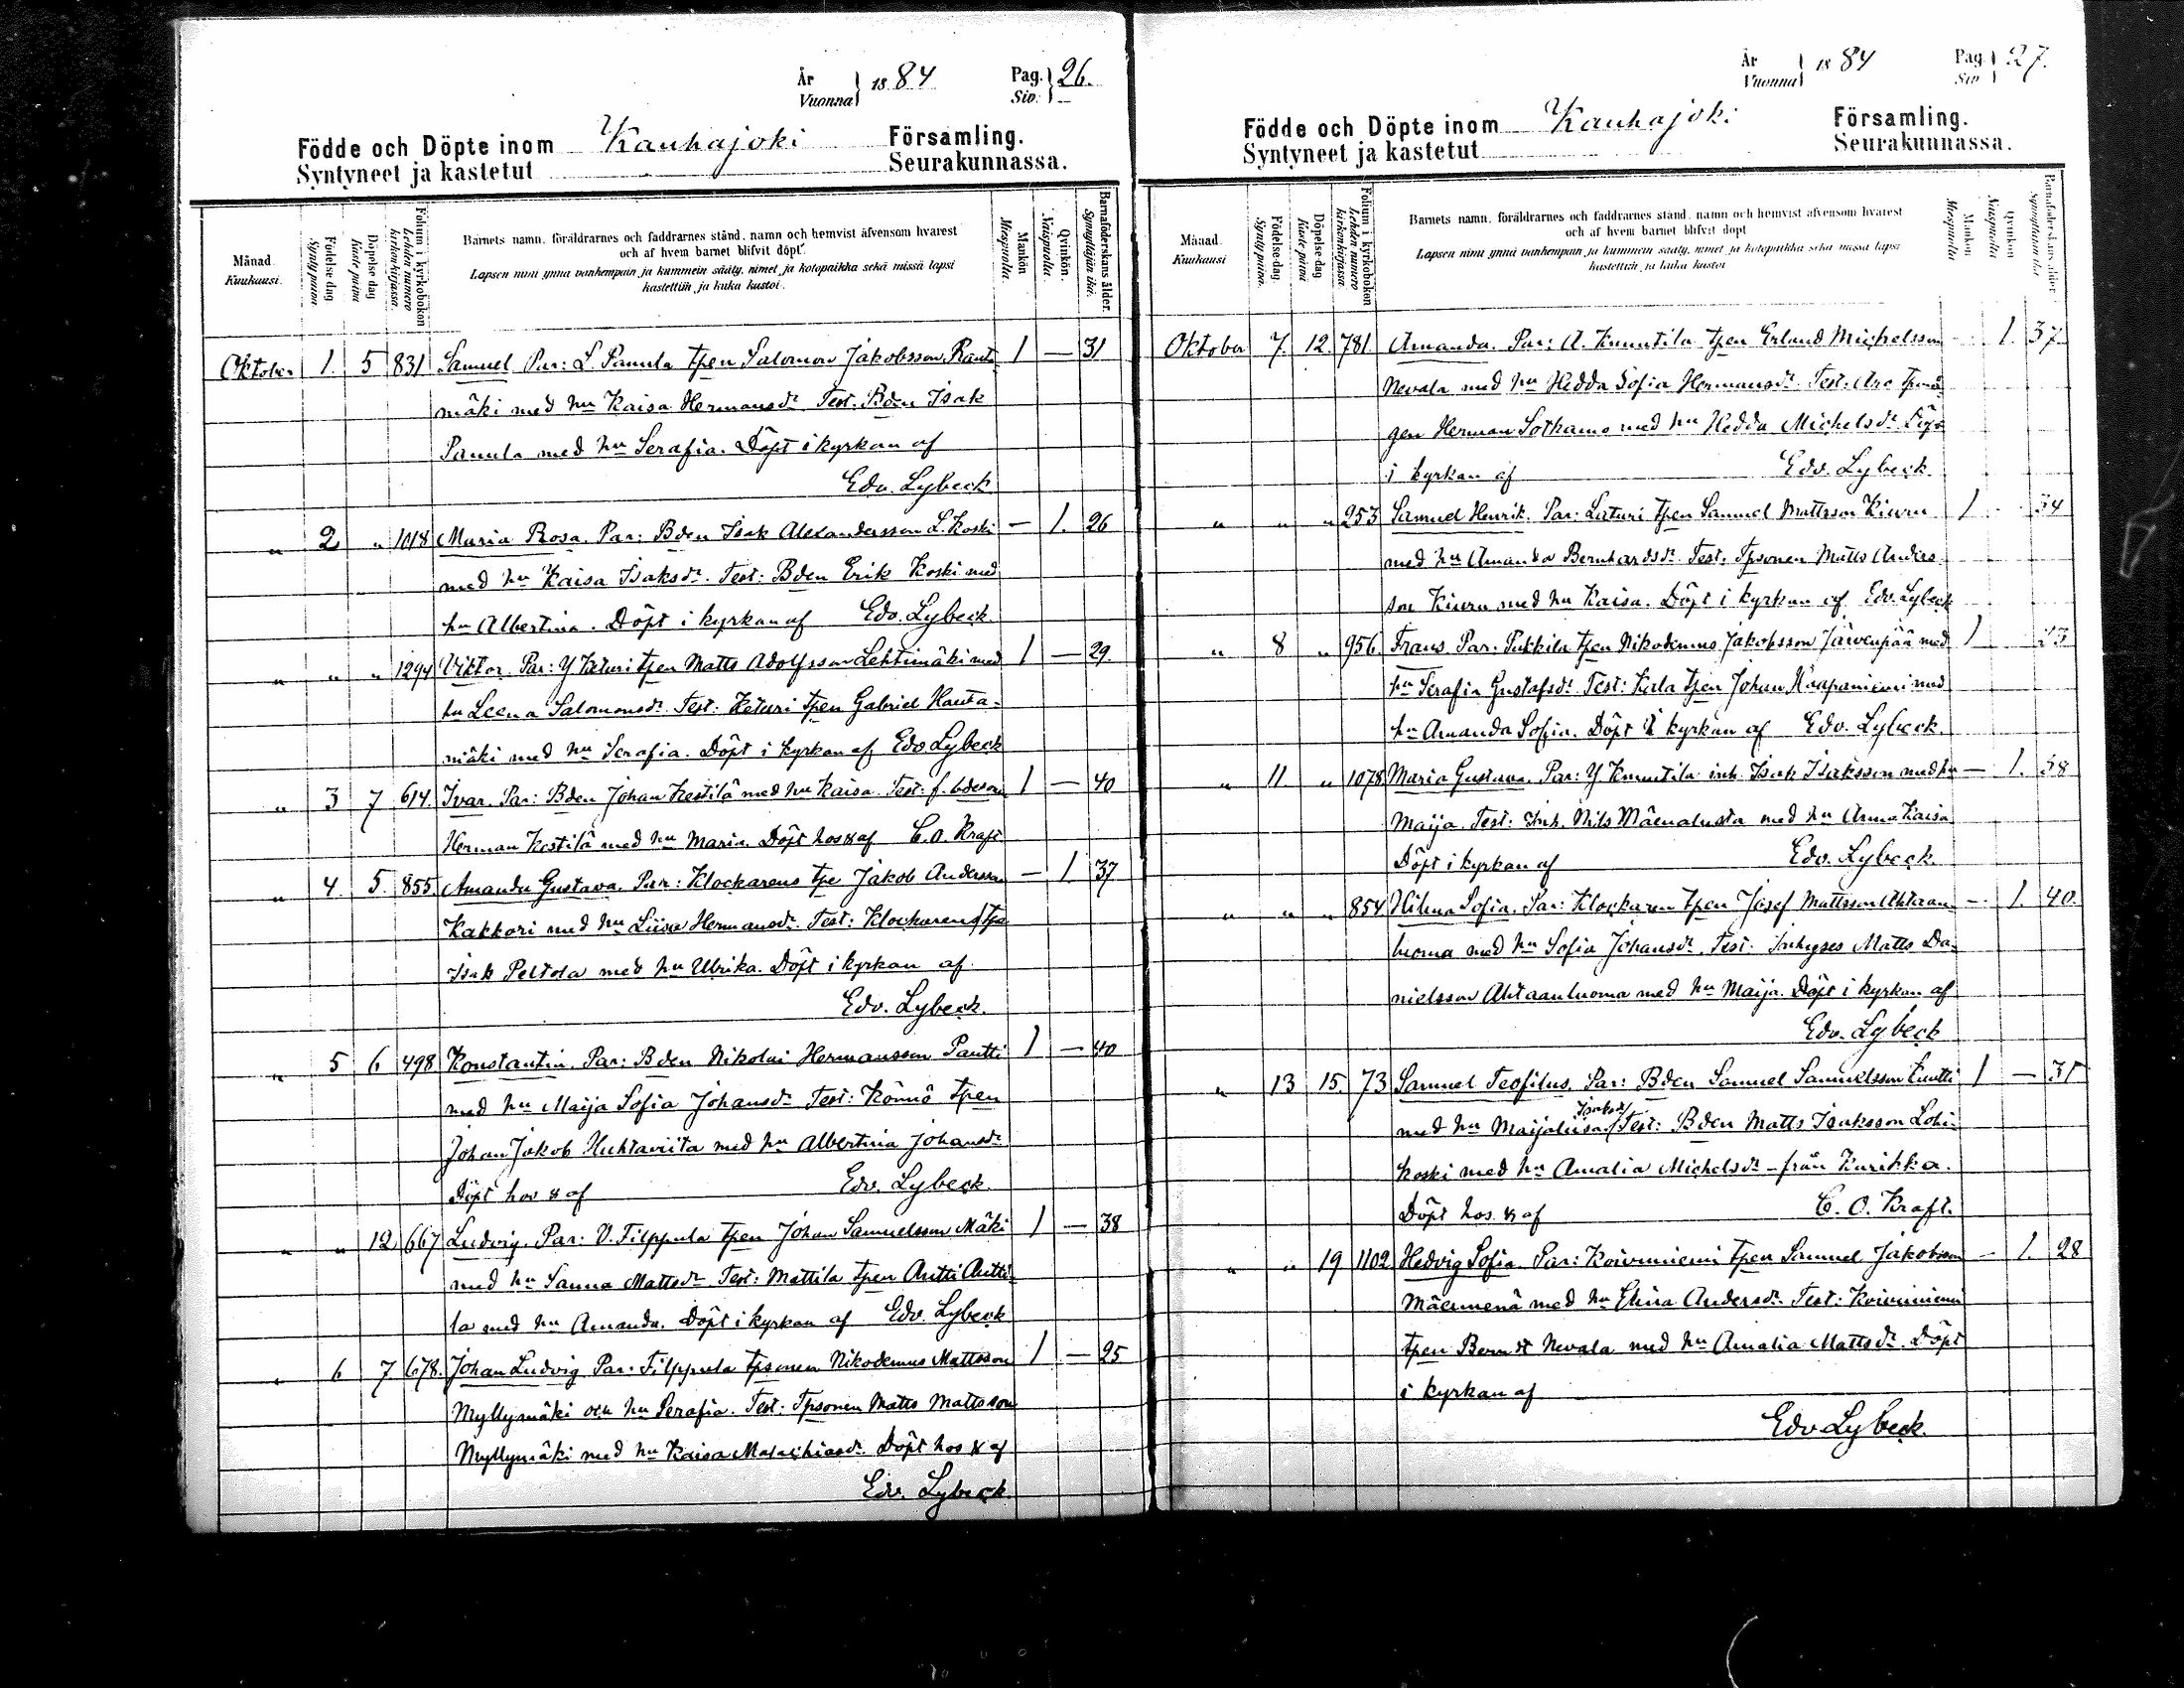 År
Vuonna
1884
Pag.
Siv.
26.
Födde och Döpte inom Kauhajoki Församling.
Syntyneet ja kastetut Seurakunnassa.
Månad.
Kuukausi.
Födelse dag
Synty päivä.
Döpelse dag
Kaste päivä
Folium i kyrkobokon
Lehden numero
kirkonkirjassa.
Barnets namn, föräldrarnes och faddrarnes stånd, namn och hemvist äfvensom hvarest
och af hvem barnet blifvit döpt.
Lapsen nimi ynnä vanhempain ja kummein sääty, nimet ja kotopaikka sekä missä lapsi
kastettiin ja kuka kastoi.
Mankön
Miespuolta.
Qvinkön.
Naispuolta.
Barnaföderskans ålder.
Synnyttäjän ikä.
Oktober 1. 5 831 Samuel Par: L. Panula tpen Salomon Jakobsson Ranta 1 — 31
mäki med hu Kaisa Hermansdr. Test: Bden Isak
Panula med hu Serafia. Döpt i kyrkan af
Edv. Lybeck
" 2 " 1018 Maria Rosa. Par: Bden Isak Alexandersson L. Koski — 1. 26
med hu Kaisa Isaksdr. Test: Bden Erik Koski med
hu Albertina. Döpt i kyrkan af Edv. Lybeck.
" " " 1294 Viktor. Par: Y Katuri tpen Matts Adolfsson Lehtimäki med 1 — 29.
hu Leena Salomonsdr. Test: Keturi tpen Gabriel Hauta-
mäki med hu Serafia. Döpt i kyrkan af Edv Lybeck
" 3 7 614. Ivar. Par: Bden Johan Kestilä med hu Kaisa. Test: f. bdeson 1 — 40
Herman Kestilä med hu Maria. Döpt hos & af C. O. Kraft
" 4. 5. 855. Amanda Gustava. Par: Klockarens tpe Jakob Andersson — 1 37
Kakkori med hu Liisa Hermansdr. Test: Klockarens tpe
Isak Peltola med hu Ulrika. Döpt i kyrkan af
Edv. Lybeck.
" 5 6 498 Konstantin. Par: Bden Nikolai Hermansson Pantti 1 — 40
med hu Maija Sofia Johansdr. Test: Könnö tpen
Johan Jakob Huhtaviita med hu Albertina Johansdr
Döpt hos & af Edv. Lybeck.
" " 12 667 Ludvig. Par: V. Filppula tpen Johan Samuelsson Mäki 1 — 38
med hu Sanna Mattsdr Test: Mattila tpen Antti Antti-
la med hu Amanda. Döpt i kyrkan af Edv. Lybeck
" 6 7 678. Johan Ludvig Par: Filppula tpsonen Nikodemus Mattsson 1 — 25
Myllymäki och hu Serafia. Test: Tpsonen Matts Mattsson
Myllymäki med hu Kaisa Malachiasdr. Döpt hos & af
Edv. Lybeck.
År
Vuonna
1884
Pag.
Siv
27.
Födde och Döpte inom Kauhajoki Församling.
Syntyneet ja kastetut Seurakunnassa.
Månad.
Kuukausi
Födelse-dag
Synty päivä.
Döpelse dag
Kaste päivä
Folium i kyrkobokon
Lehden numero
kirkonkirjassa.
Barnets namn, föräldrarnes och faddrarnes stånd, namn och hemvist äfvensom hvarest
och af hvem barnet blifvit döpt
Lapsen nimi ynnä vanhempain ja kummein sääty, nimet ja kotopaikka sekä missä lapsi
kastettiin ja kuka kastoi
Mankön
Miespuolta
Qvinkön
Naispuolta
Barnaföderskans ålder
Synnyttäjän ikä
Oktober 7. 12. 781 Amanda. Par: A. Knuutila tpen Erland Michelsson 1. 37.
Nevala med hu Hedda Sofia Hermansdr. Test: Aro
gen Herman Sotkamo med hu Hedda Michelsdr. Döpt
i kyrkan af Edv. Lybeck.
" " " 253 Samuel Henrik. Par: Laturi tpen Samuel Mattsson Kiuru 1 34
med hu Amanda Bernhardsdr. Test: Tpsonen Matts Anders
son Kiuru med hu Kaisa. Döpt i kyrkan af Edv. Lybeck
" 8 " 956 Frans. Par: Pukkila tpen Nikodemus Jakobsson Järvenpää med 1
hu Serafia Gustafsdr. Test: Kala tpen Johan Haapaniemi med
hu Amanda Sofia. Döpt i kyrkan af Edv. Lybeck.
" 11. " 1078 Maria Gustava. Par: Y Knuutila inh. Isak Isaksson med hu — 1. 38
Maija. Test: Inh. Nils Mäenalusta med hu Anna Kaisa
Döpt i kyrkan af Edv. Lybeck.
" " " 854 Hilma Sofia. Par: Klockaren tpen Josef Mattsson Ahtaan — 1. 40.
luoma med hu Sofia Johansdr. Test: Inhyses Matts Da-
nielsson Ahtaanluoma med hu Maija. Döpt i kyrkan af
Edv. Lybeck
" 13 15. 73 Samuel Teofilus. Par: Bden Samuel Samuelsson Luutti 1 — 31
med hu Maijaliisa Isaksdr Test: Bden Matts Isaksson Lohi-
koski med hu Amalia Michelsdr — från Kurikka.
Döpt hos & af C. O. Kraft.
" " 19 1102 Hedvig Sofia Par: Koivuniemi tpen Samuel Jakobsson — 1. 28
Mäenmenä med hu Elina Andersdr. Test: Koivuniemi
tpen Berndt Nevala med hu Amalia Mattsdr. Döpt
i kyrkan af
Edv Lybeck.